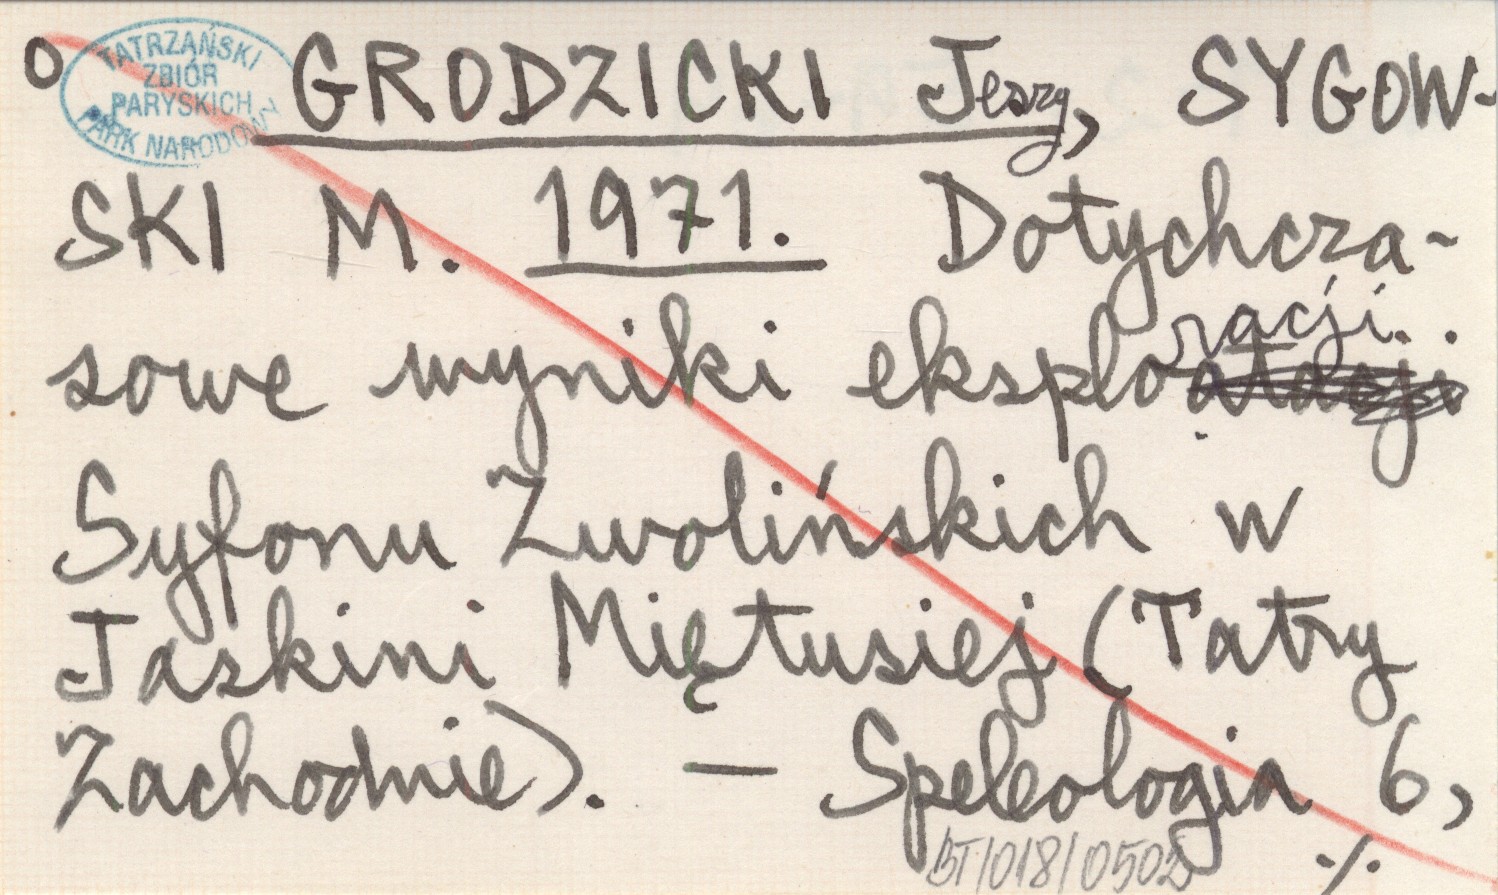 O
TATRZAŃSKI
ZBIÓR
PARYSKICH
PARK NARODOWY
GRODZICKI Jerzy, SYGOW-
SKI M. 1971. Dotychcza-
sowe wyniki eksploracji.
Syfonu Zwolińskich w
Jaskini Miętusiej (Tatry
Zachodnie). — Speleologia 6,
BT/018/0502
./.